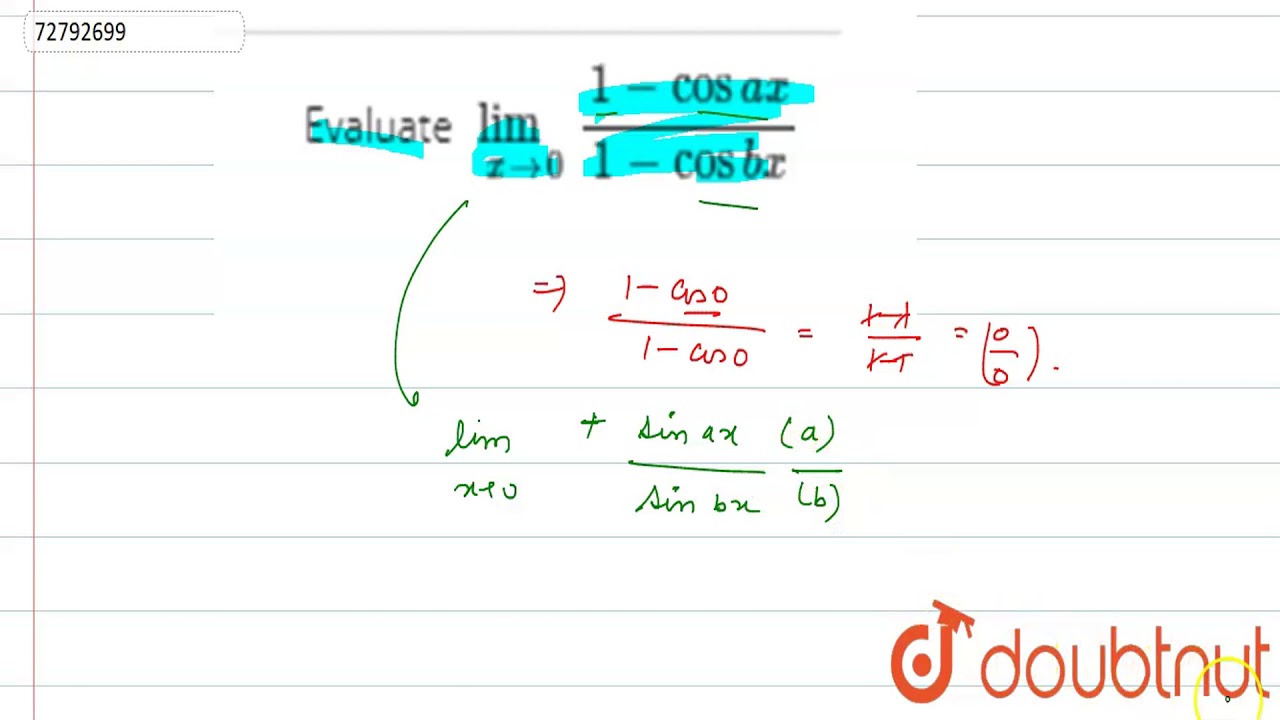 72792699
Evaluate lim x→0 (1 − cos ax)/(1 − cos bx)
⇒ (1 − cos 0)/(1 − cos 0) = (1−1)/(1−1) = (0/0).
lim x→0 + (sin ax (a))/(sin bx (b))
doubtnut